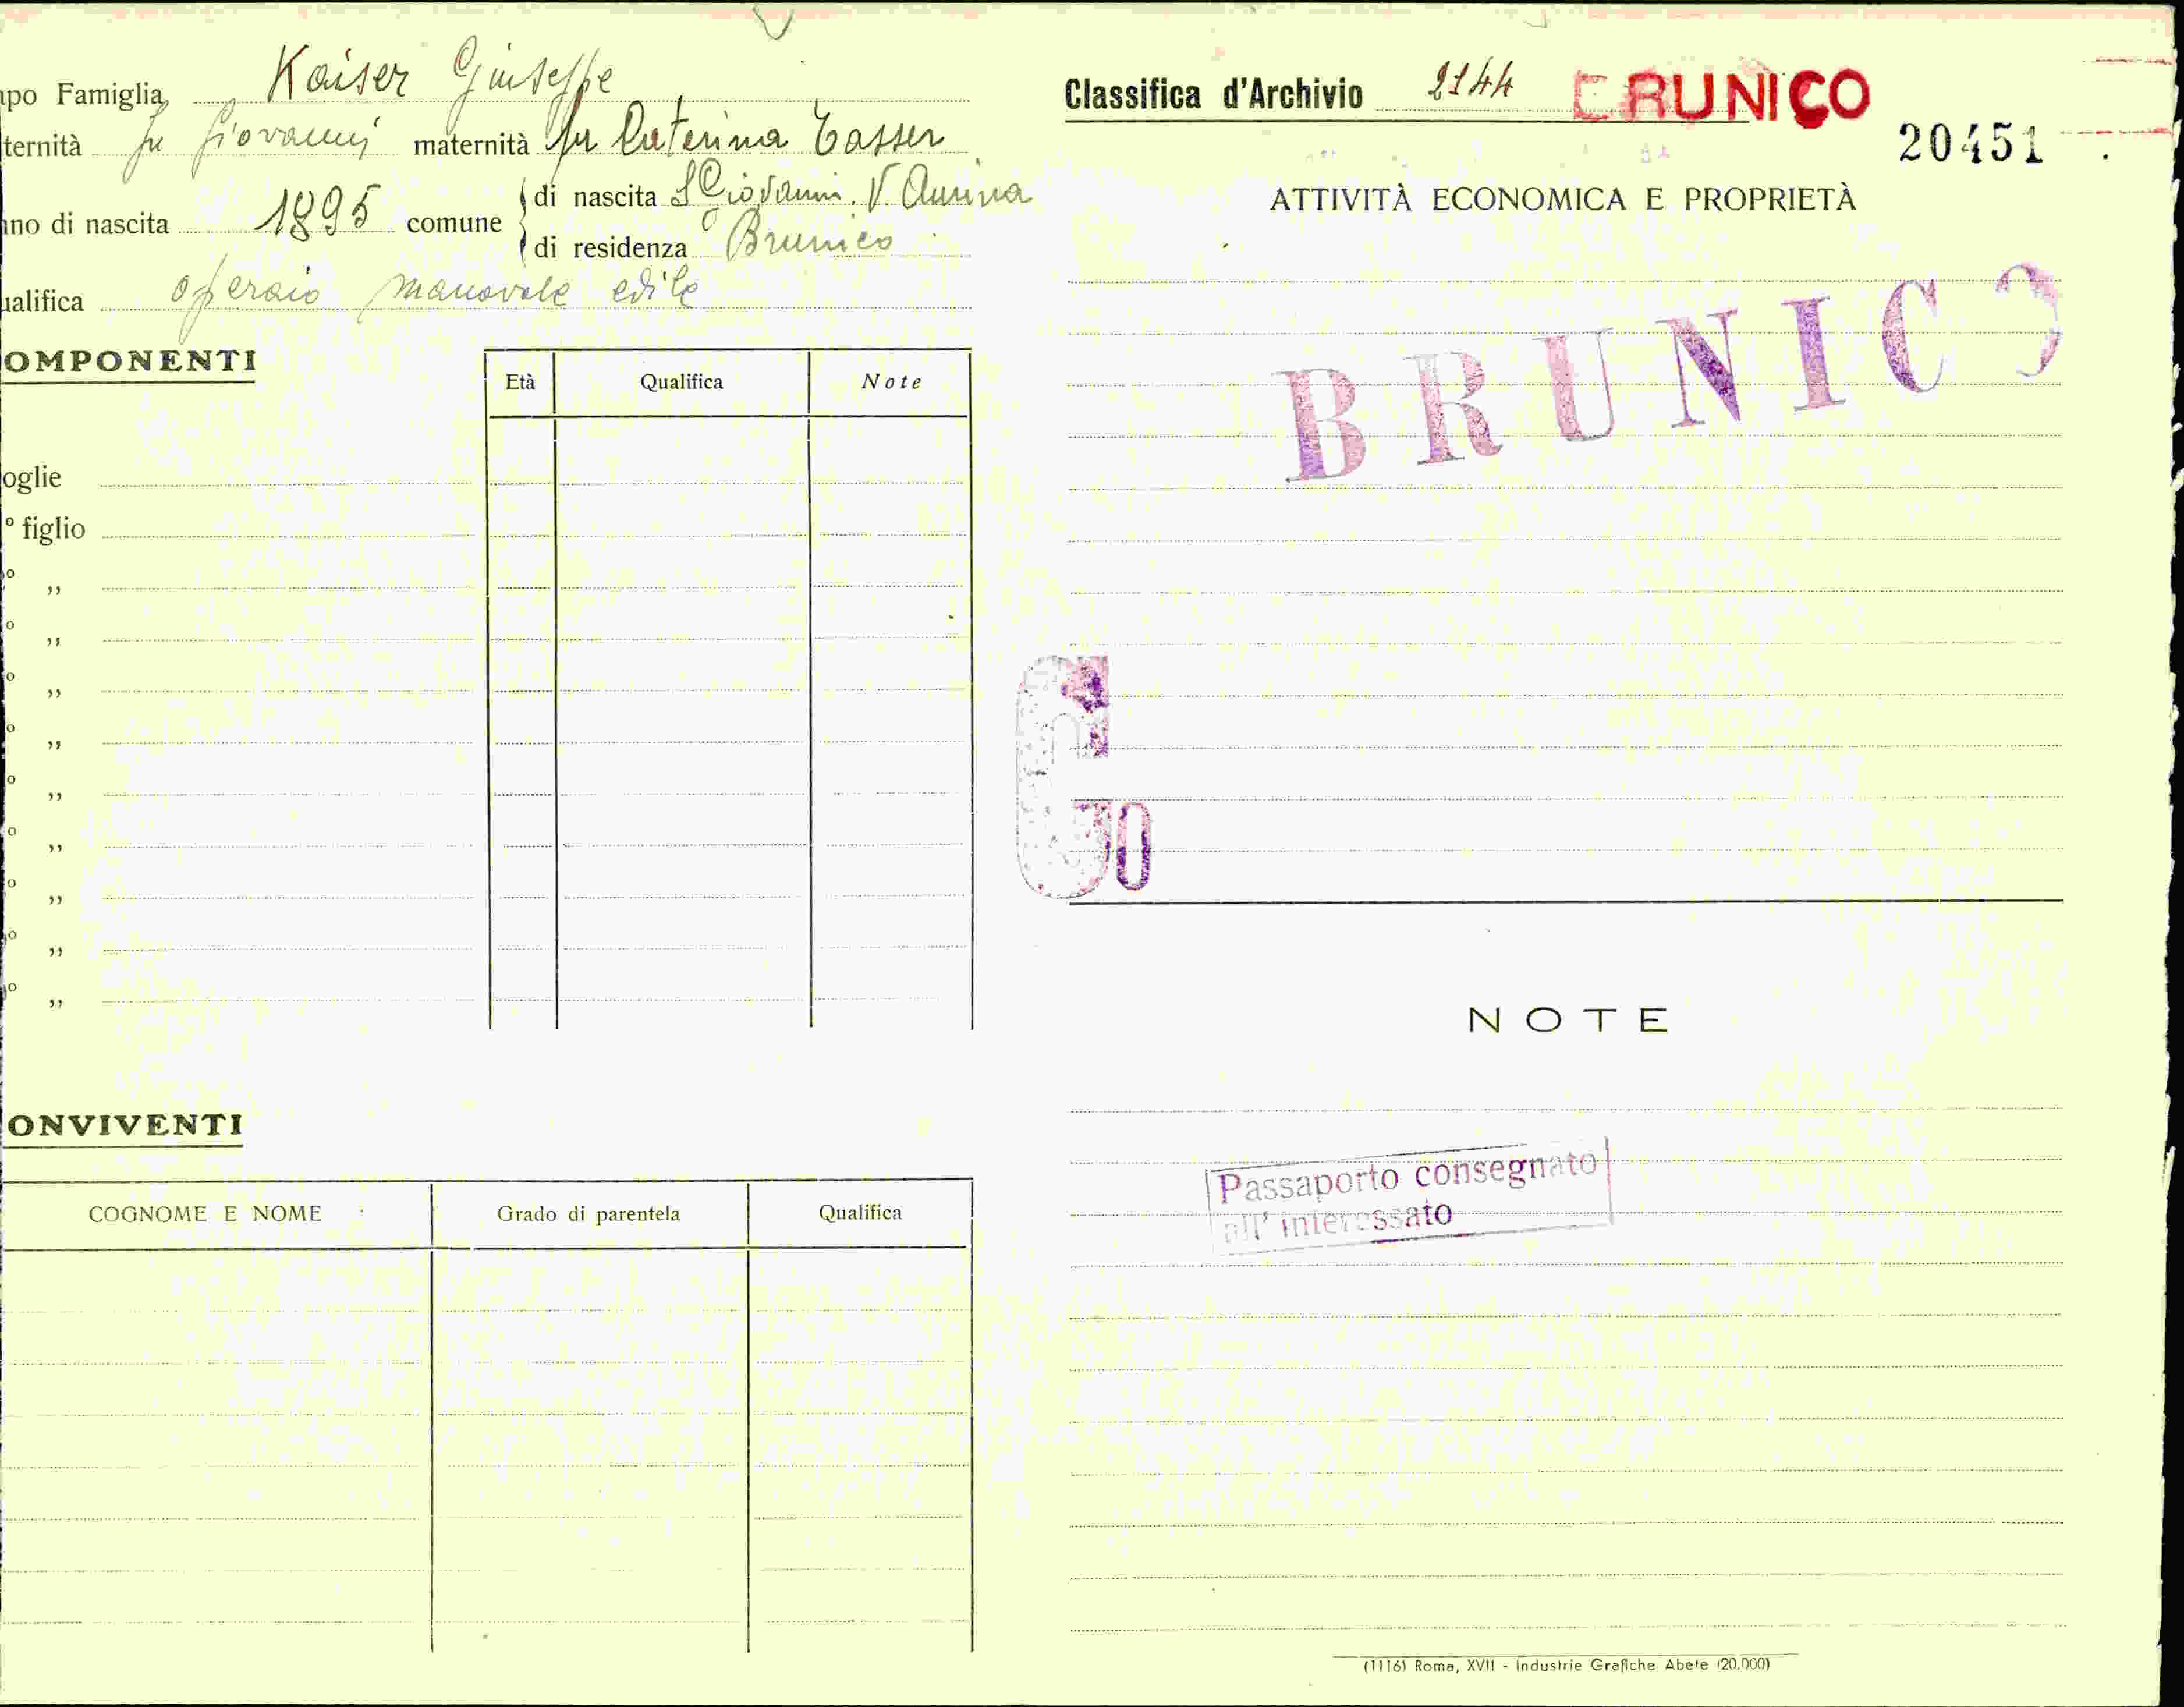 apo Famiglia Kaiser Giuseppe
ternità fu Giovanni maternità fu Caterina Tasser
nno di nascita 1895 comune di nascita S Giovanni. V. Aurina
di residenza Brunico
ualifica operaio manovale edile
OMPONENTI
Età Qualifica Note
oglie
° figlio
° ,,
° ,,
° ,,
° ,,
° ,,
° ,,
° ,,
° ,,
° ,,
ONVIVENTI
COGNOME E NOME Grado di parentela Qualifica
Classifica d'Archivio 2144 BRUNICO
20451
ATTIVITÀ ECONOMICA E PROPRIETÀ
BRUNICO
NOTE
Passaporto consegnato
all' interessato
(1116) Roma, XVII - Industrie Grafiche Abete (20.000)